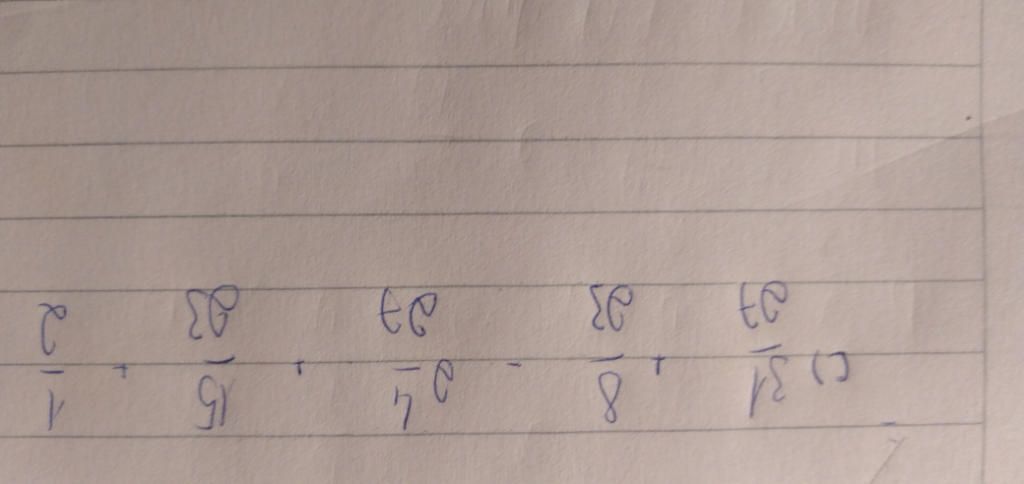 c) 31/27 + 8/23 - 2 4/27 + 15/23 + 1/2